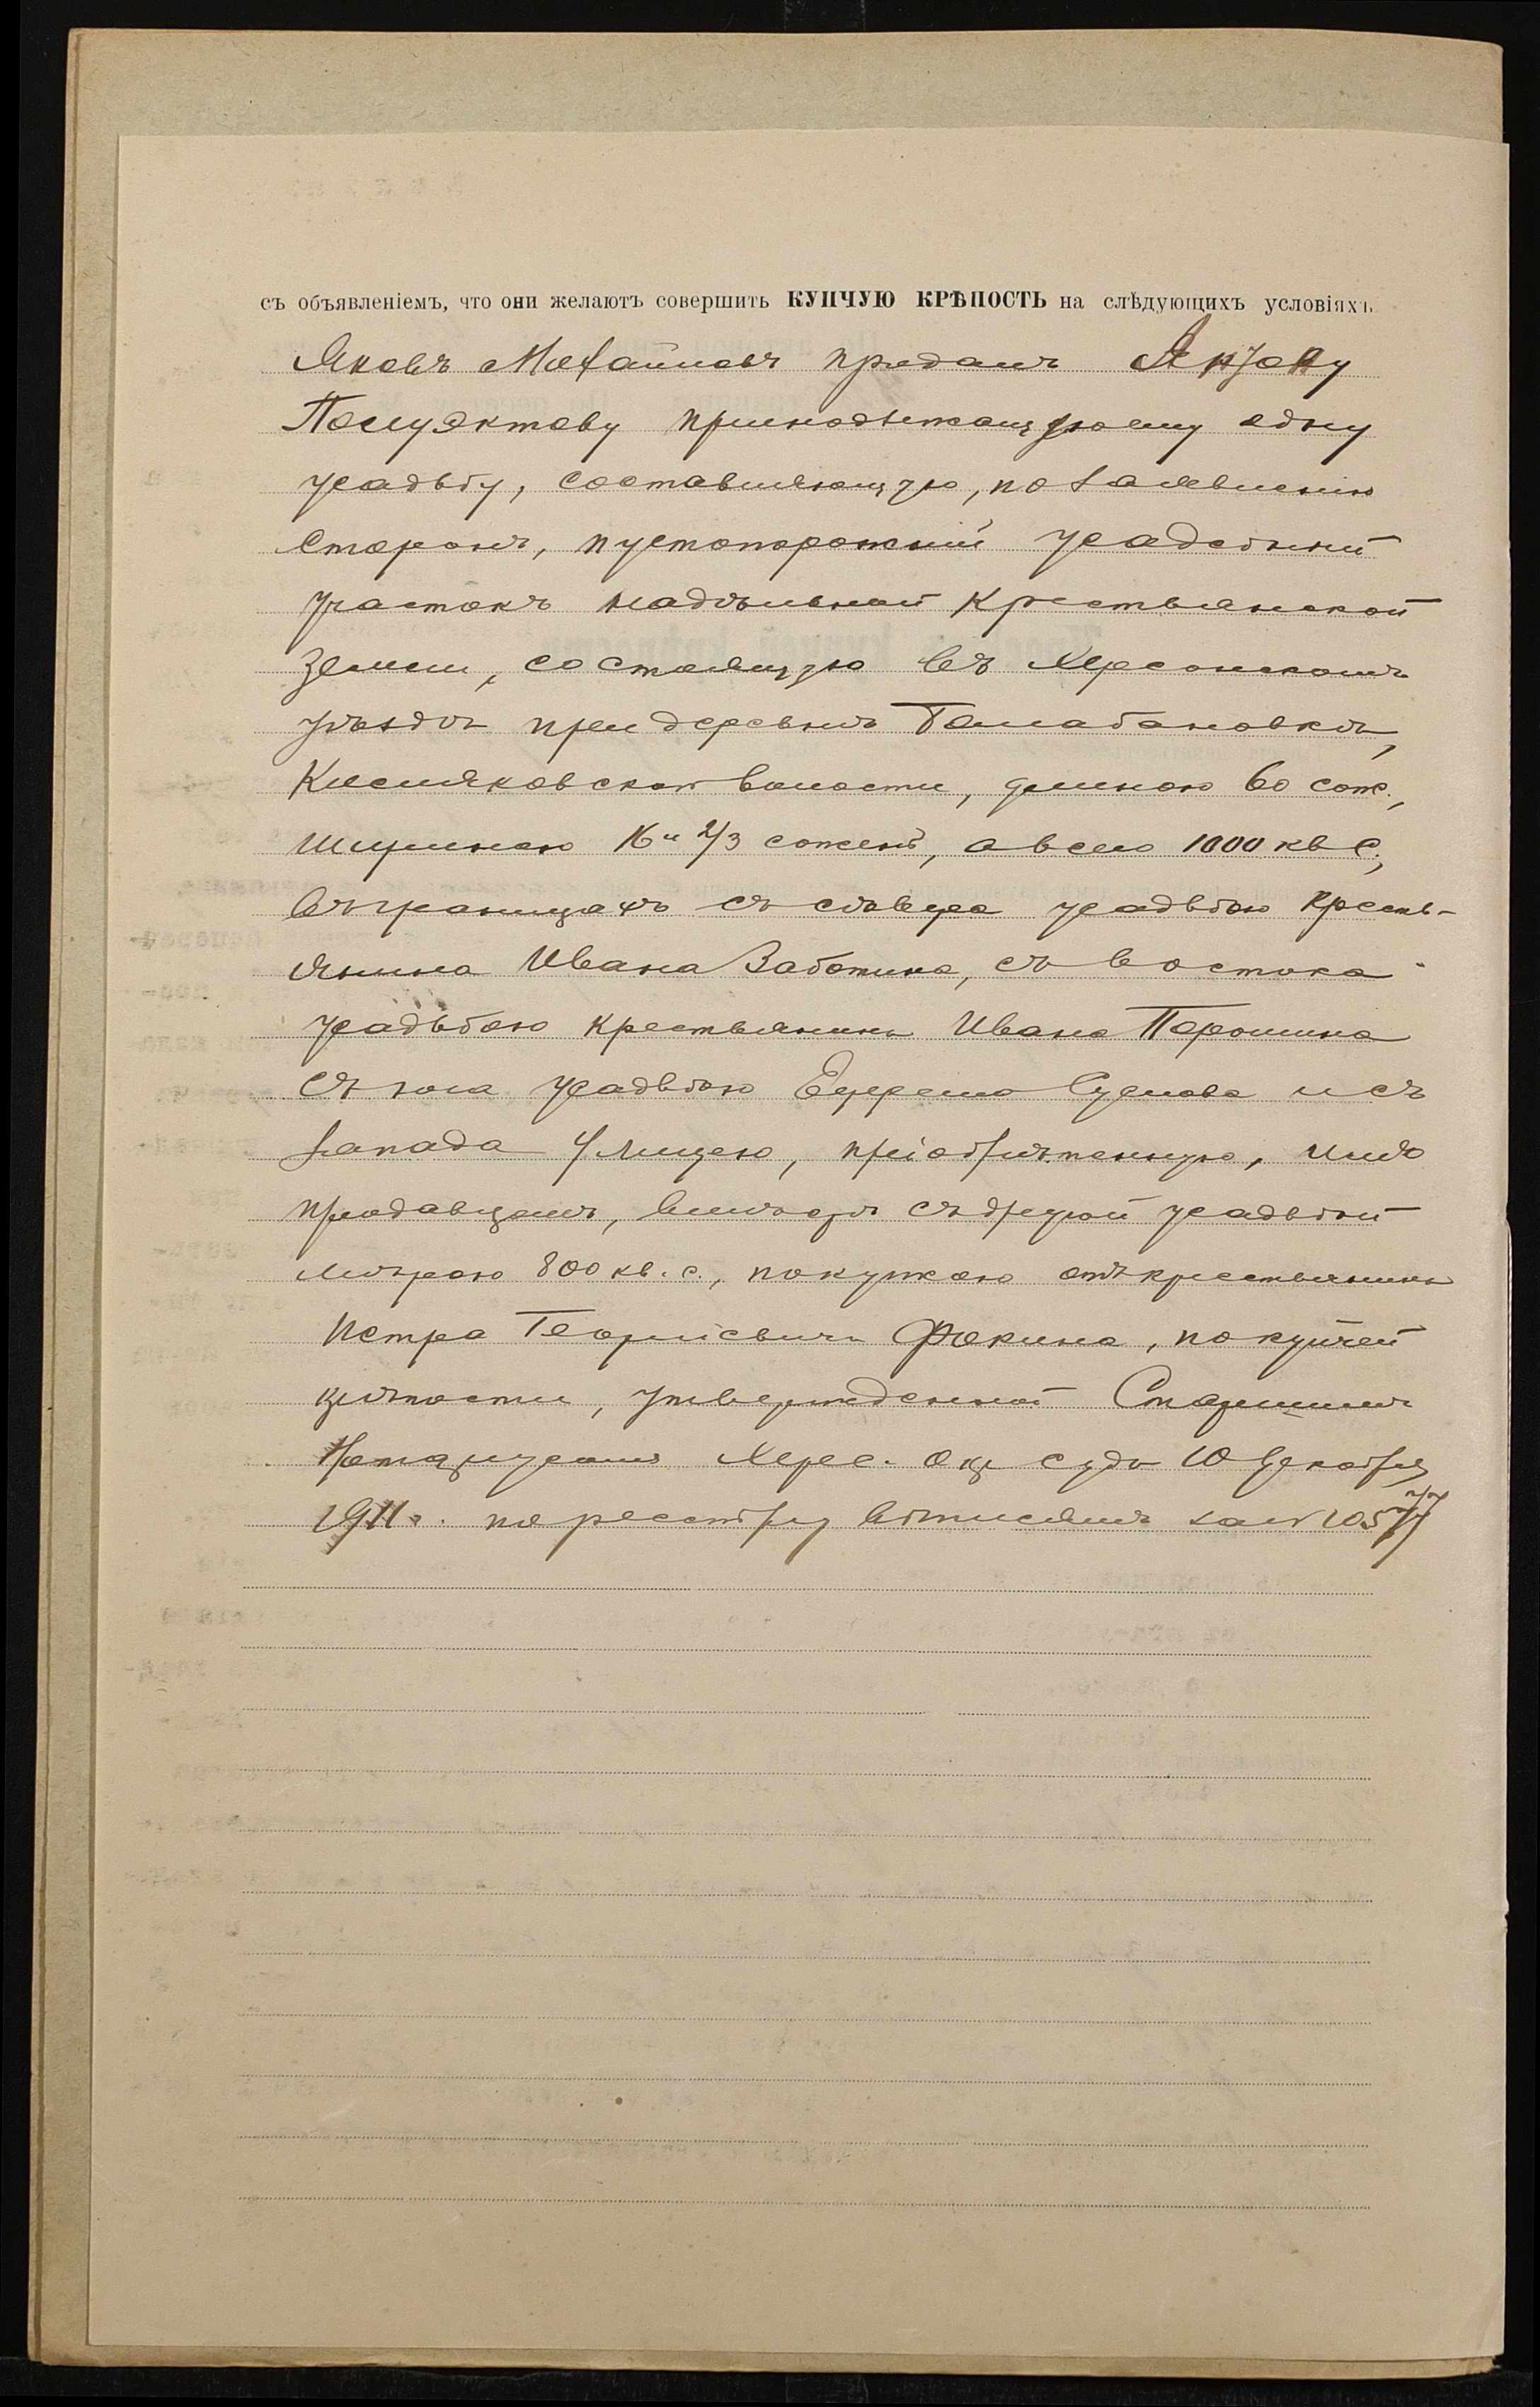 съ объявленіемъ, что они желаютъ совершить КУПЧУЮ КРѢПОСТЬ на слѣдующихъ условіяхъ
Яковъ Михайловъ продалъ Антону
Полуэктову принадлежащую ему одну
усадьбу, составляющую, по заявленію
сторонъ, пустопорожній усадебный
участокъ надѣльной крестьянской
земли, состоящую въ Херсонскомъ
уѣздѣ при деревнѣ Балабановкѣ,
Кисляковской волости, длиною 60 саж.,
шириною 16 и 2/3 сажень, а всего 1000 кв с.,
въ границахъ съ сѣвера усадьбою кресть-
янина Ивана Заботина, съ востока
усадьбою крестьянина Ивана Порошина
съ юга усадьбою Ефрема и съ
запада улицею, пріобрѣтенную, имъ
продавцомъ, вмѣстѣ съ другой усадьбой
мѣрою 800 кв. с., покупкою отъ крестьянина
Петра Георгіевича Фокина, по купчей
крѣпости, утвержденной Старшимъ
Нотаріусомъ Херс. Окр суда 10 декабря
1911 г. по реестру крѣпостныхъ за № 10577